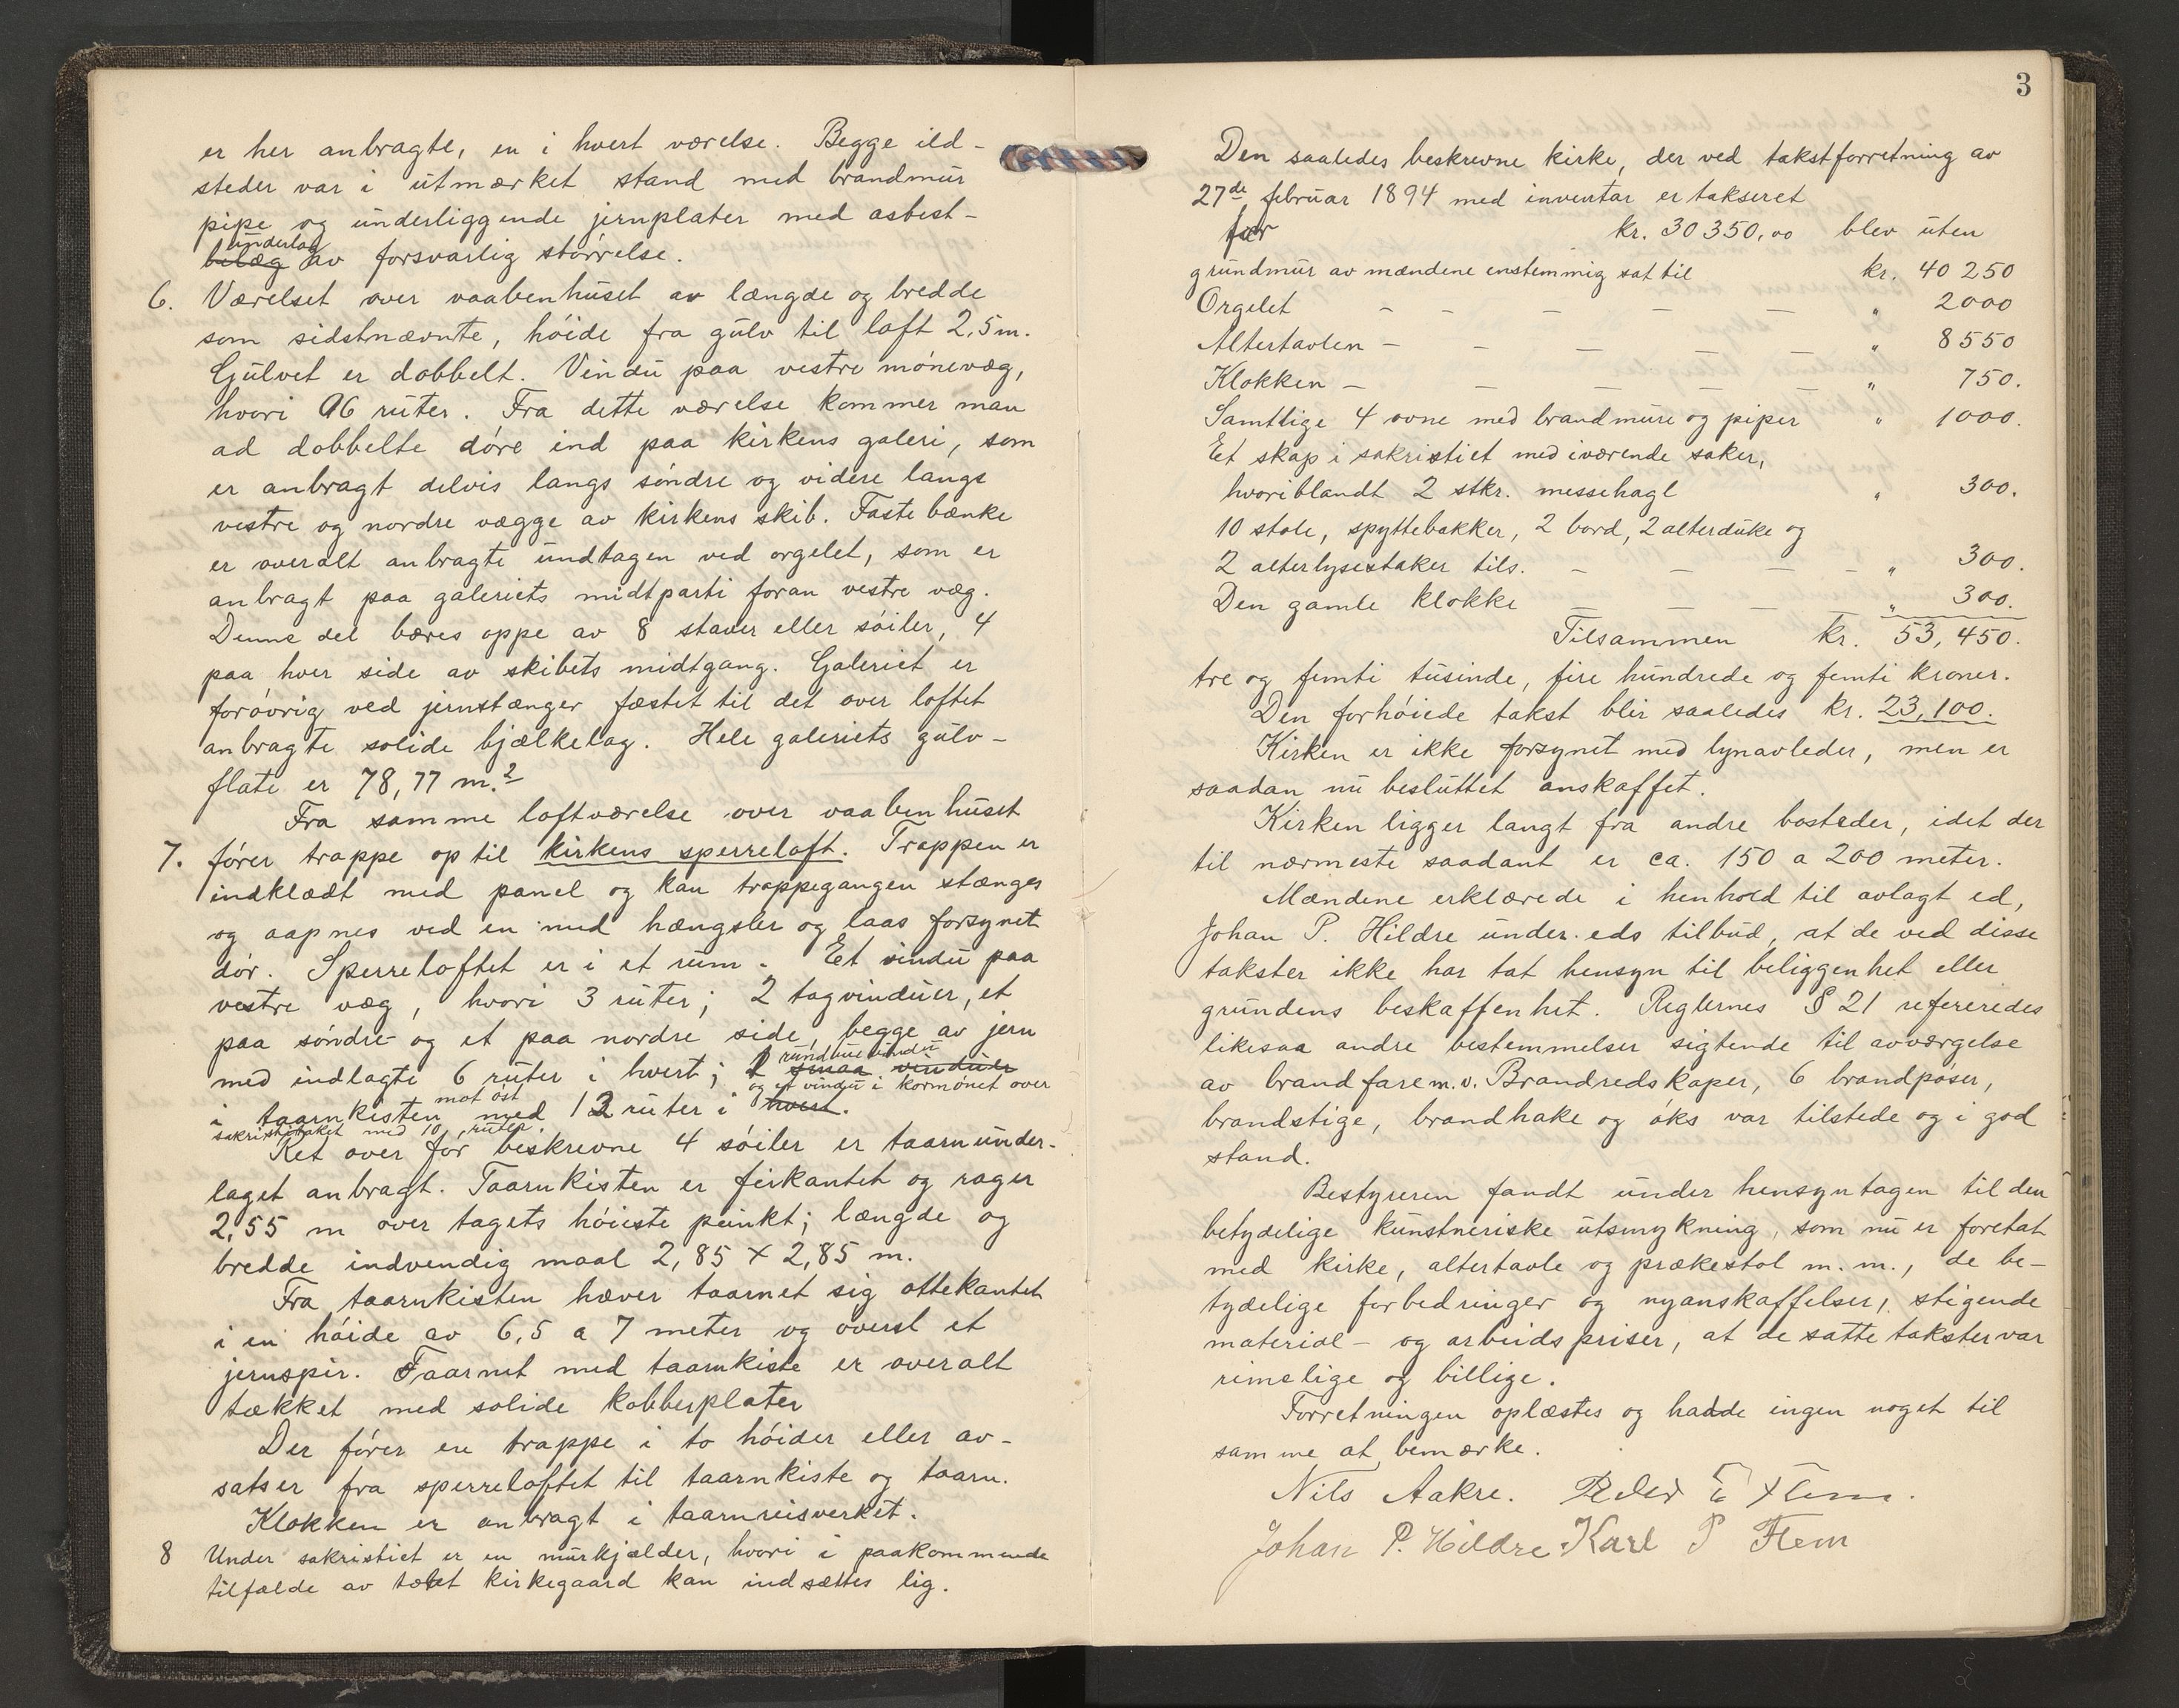 er her anbragte, en i hvert værelse. Begge ild-
steder var i utmærket stand med brandmur
pipe og underliggende jernplater med asbest-
underlag
belæg av forsvarlig størrelse.
6. Værelset over vaabenhuset av længde og bredde
som sidstnævnte, høide fra gulv til loft 2,5 m.
Gulvet er dobbelt. Vindu paa vestre mønevæg,
hvori 96 ruter. Fra dette værelse kommer man
ad dobbelte døre ind paa kirkens galeri, som
er anbragt delvis langs søndre og videre langs
vestre og nordre vægge av kirkens skib. Faste bænke
er overalt anbragte undtagen ved orgelet, som er
anbragt paa galeriets midtparti foran vestre væg.
Denne del bæres oppe av 8 staver eller søiler, 4
paa hver side av skibets midtgang. Galeriet er
forøvrig ved jernstænger fæstet til det over loftet
anbragte solide bjælkelag. Hele galeriets gulv-
flate er 78,77 m.²
Fra samme loftværelse over vaabenhuset
7. fører trappe op til kirkens sperreloft. Trappen er
indklædt med panel og kan trappegangen stænges
og aapnes ved en med hængsler og laas forsynet
dør. Sperreloftet er i et rum. Et vindu paa
vestre væg, hvori 3 ruter; 2 tagvinduer, et
paa søndre og et paa nordre side, begge av jern
rundbue vindu
med indlagte 6 ruter i hvert; 1 smaa vinduer
mot øst og et vindu i kormønet over
i taarnkisten med 12 ruter i hvert.
sakristitaket med 10 ruter.
Ret over før beskrevne 4 søiler er taarnunder-
laget anbragt. Taarnkisten er firkantet og rager
2,55 m over tagets høieste punkt; længde og
bredde indvendig maal 2,85 x 2,85 m.
Fra taarnkisten hæver taarnet sig ottekantet
i en høide av 6,5 a 7 meter og øverst et
jernspir. Taarnet med taarnkiste er overalt
tækket med solide kobberplater
Der fører en trappe i to høider eller av-
satser fra sperreloftet til taarnkiste og taarn.
Klokken er anbragt i taarnreisverket.
8 Under sakristiet er en murkjælder, hvori i paakommende
tilfælde av tælet kirkegaard kan indsættes lig.
3
Den saaledes beskrevne kirke, der ved takstforretning av
27de februar 1894 med inventar er takseret
for kr. 30350,00 blev uten
grundmur av mændene enstemmig sat til kr. 40 250
Orgelet - - - - - " 2000
Altertavlen - - - - - " 8550
Klokken - - - - - " 750.
Samtlige 4 ovne med brandmure og piper " 1000.
Et skap i sakristiet med iværende saker,
hvoriblandt 2 stkr. messehagl " 300.
10 stole, spyttebakker, 2 bord, 2 alterduke og
2 alterlysestaker tils. - - - - " 300.
Den gamle klokke - - - " 300.
Tilsammen kr. 53,450.
tre og femti tusinde, fire hundrede og femti kroner.
Den forhøiede takst blir saaledes kr. 23,100.
Kirken er ikke forsynet med lynavleder, men er
saadan nu besluttet anskaffet.
Kirken ligger langt fra andre bosteder, idet der
til nærmeste saadant er ca. 150 a 200 meter.
Mændene erklærede i henhold til avlagt ed,
Johan P. Hildre under eds tilbud, at de ved disse
takster ikke har tat hensyn til beliggenhet eller
grundens beskaffenhet. Reglernes § 21 refereredes
likesaa andre bestemmelser sigtende til avværgelse
av brandfare m.v. Brandredskaper, 6 brandpøser,
brandstige, brandhake og øks var tilstede og i god
stand.
Bestyreren fandt under hensyntagen til den
betydelige kunstneriske utsmykning, som nu er foretat
med kirke, altertavle og prækestol m.m., de be-
tydelige forbedringer og nyanskaffelser, stigende
material- og arbeidspriser, at de satte takster var
rimelige og billige.
Forretningen oplæstes og hadde ingen noget til
samme at bemærke.
Nils Aakre. Peder E Flem.
Johan P. Hildre Karl P Flem